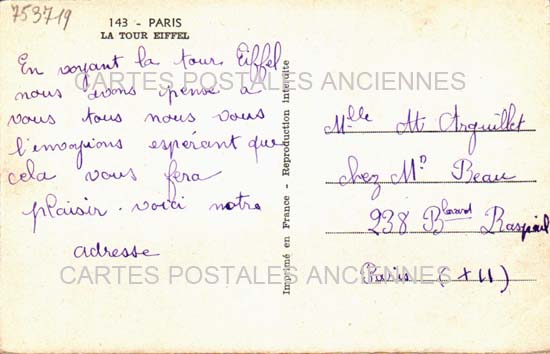 753719
143 - PARIS
LA TOUR EIFFEL
En voyant la tour Eiffel
nous avons pensé à
vous tous nous vous
l'envoyions espérant que
cela vous fera
plaisir. voici notre
adresse
CARTES POSTALES ANCIENNES
CARTES POSTALES ANCIENNES
Imprimé en France - Reproduction Interdite
Mlle M Arguillet
chez Mr Beau
238 Blevard Raspail
Paris (XII)